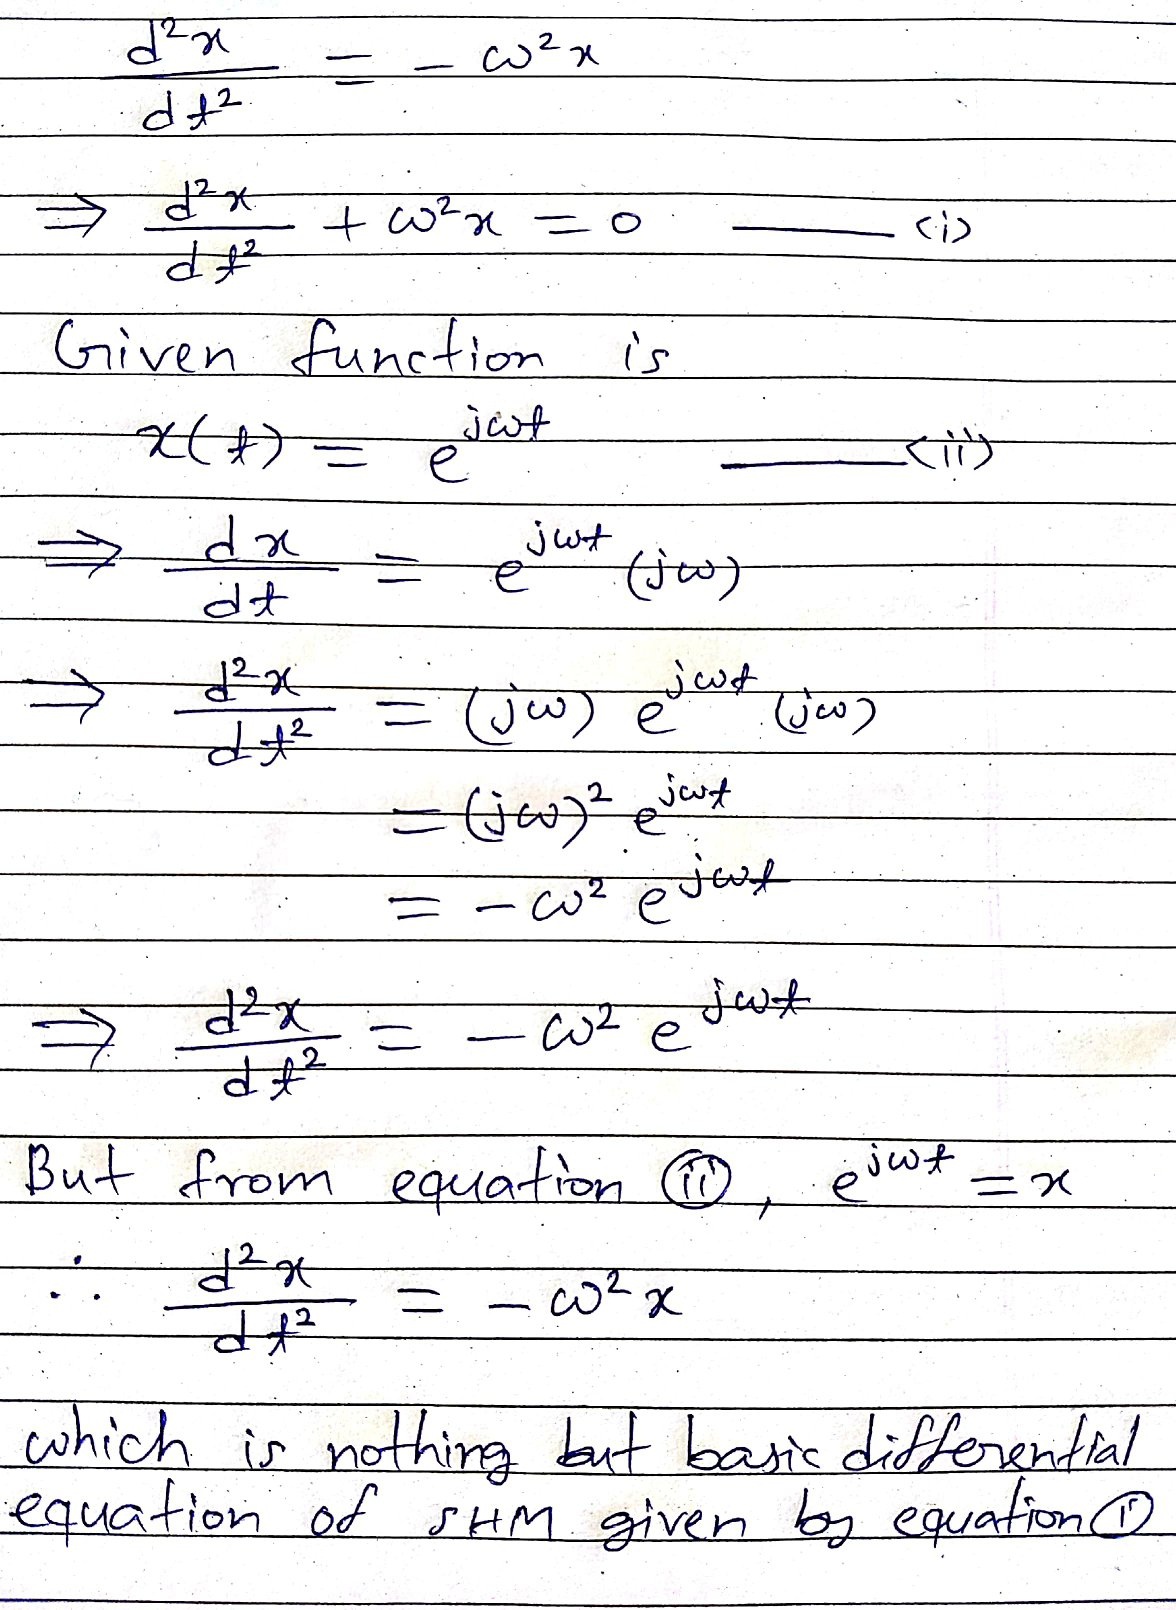 d²x/dt² = - ω²x
⇒ d²x/dt² + ω²x = 0 —— (i)
Given function is
x(t) = e^{jωt} —— (ii)
⇒ dx/dt = e^{jωt} (jω)
⇒ d²x/dt² = (jω) e^{jωt} (jω)
= (jω)² e^{jωt}
= - ω² e^{jωt}
⇒ d²x/dt² = - ω² e^{jωt}
But from equation (ii), e^{jωt} = x
∴ d²x/dt² = - ω²x
which is nothing but basic differential
equation of SHM given by equation (i)